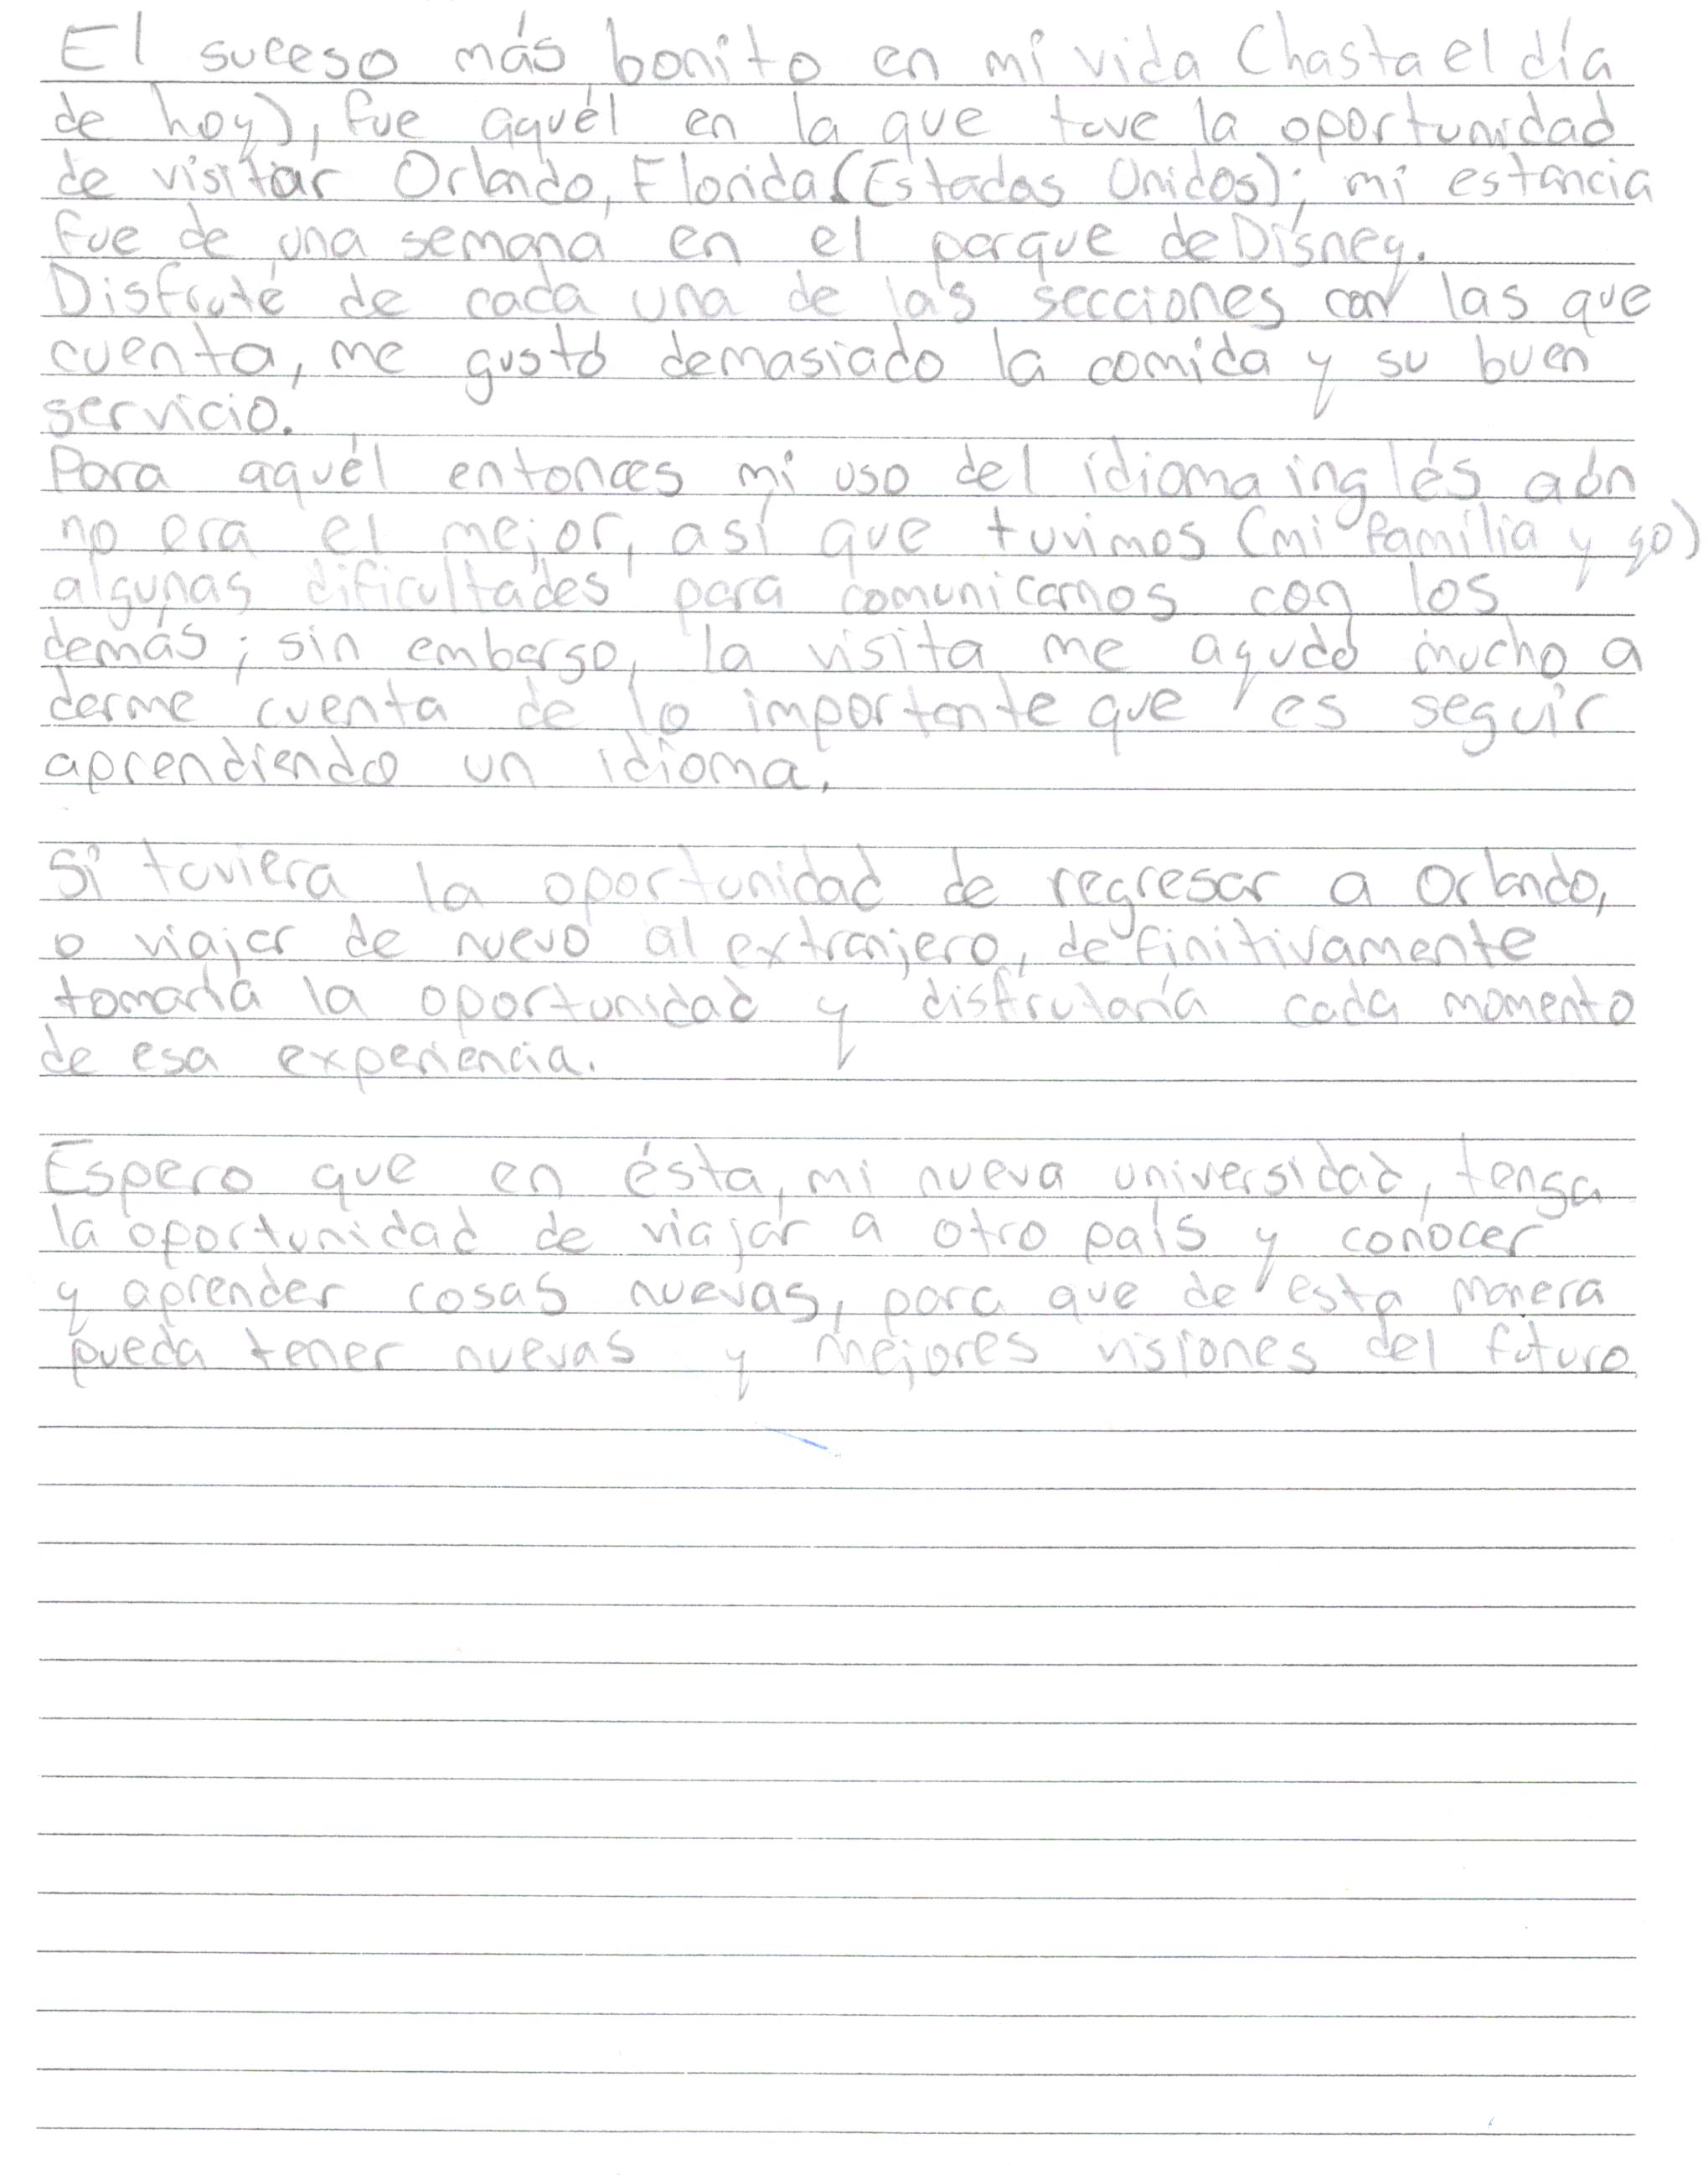 El suceso más bonito en mi vida (hasta el día
de hoy), fue aquél en la que tuve la oportunidad
de visitar Orlando, Florida (Estados Unidos); mi estancia
fue de una semana en el parque de Disney.
Disfruté de cada una de las secciones con las que
cuenta, me gustó demasiado la comida y su buen
servicio.
Para aquél entonces mi uso del idioma inglés aún
no era el mejor, así que tuvimos (mi familia y yo)
algunas dificultades para comunicarnos con los
demás; sin embargo, la visita me ayudó mucho a
darme cuenta de lo importante que es seguir
aprendiendo un idioma.
Si tuviera la oportunidad de regresar a Orlando,
o viajar de nuevo al extranjero, definitivamente
tomaría la oportunidad y disfrutaría cada momento
de esa experiencia.
Espero que en ésta, mi nueva universidad, tenga
la oportunidad de viajar a otro país y conocer
y aprender cosas nuevas, para que de esta manera
pueda tener nuevas y mejores visiones del futuro.